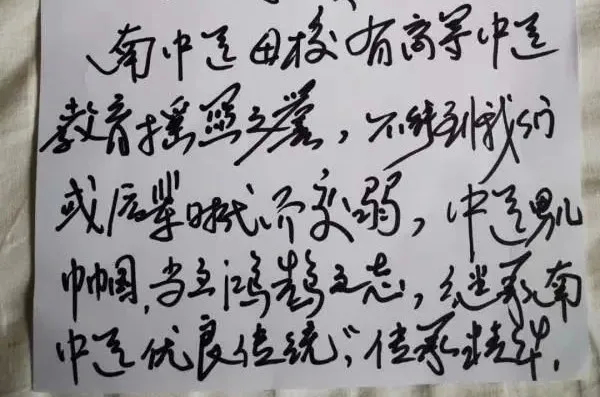 南中医母校有高等中医
教育摇篮之誉，不能到我们
或后辈时代而变弱，中医男儿
巾帼，当立鸿鹄之志，继承南
中医优良传统，传承精华，